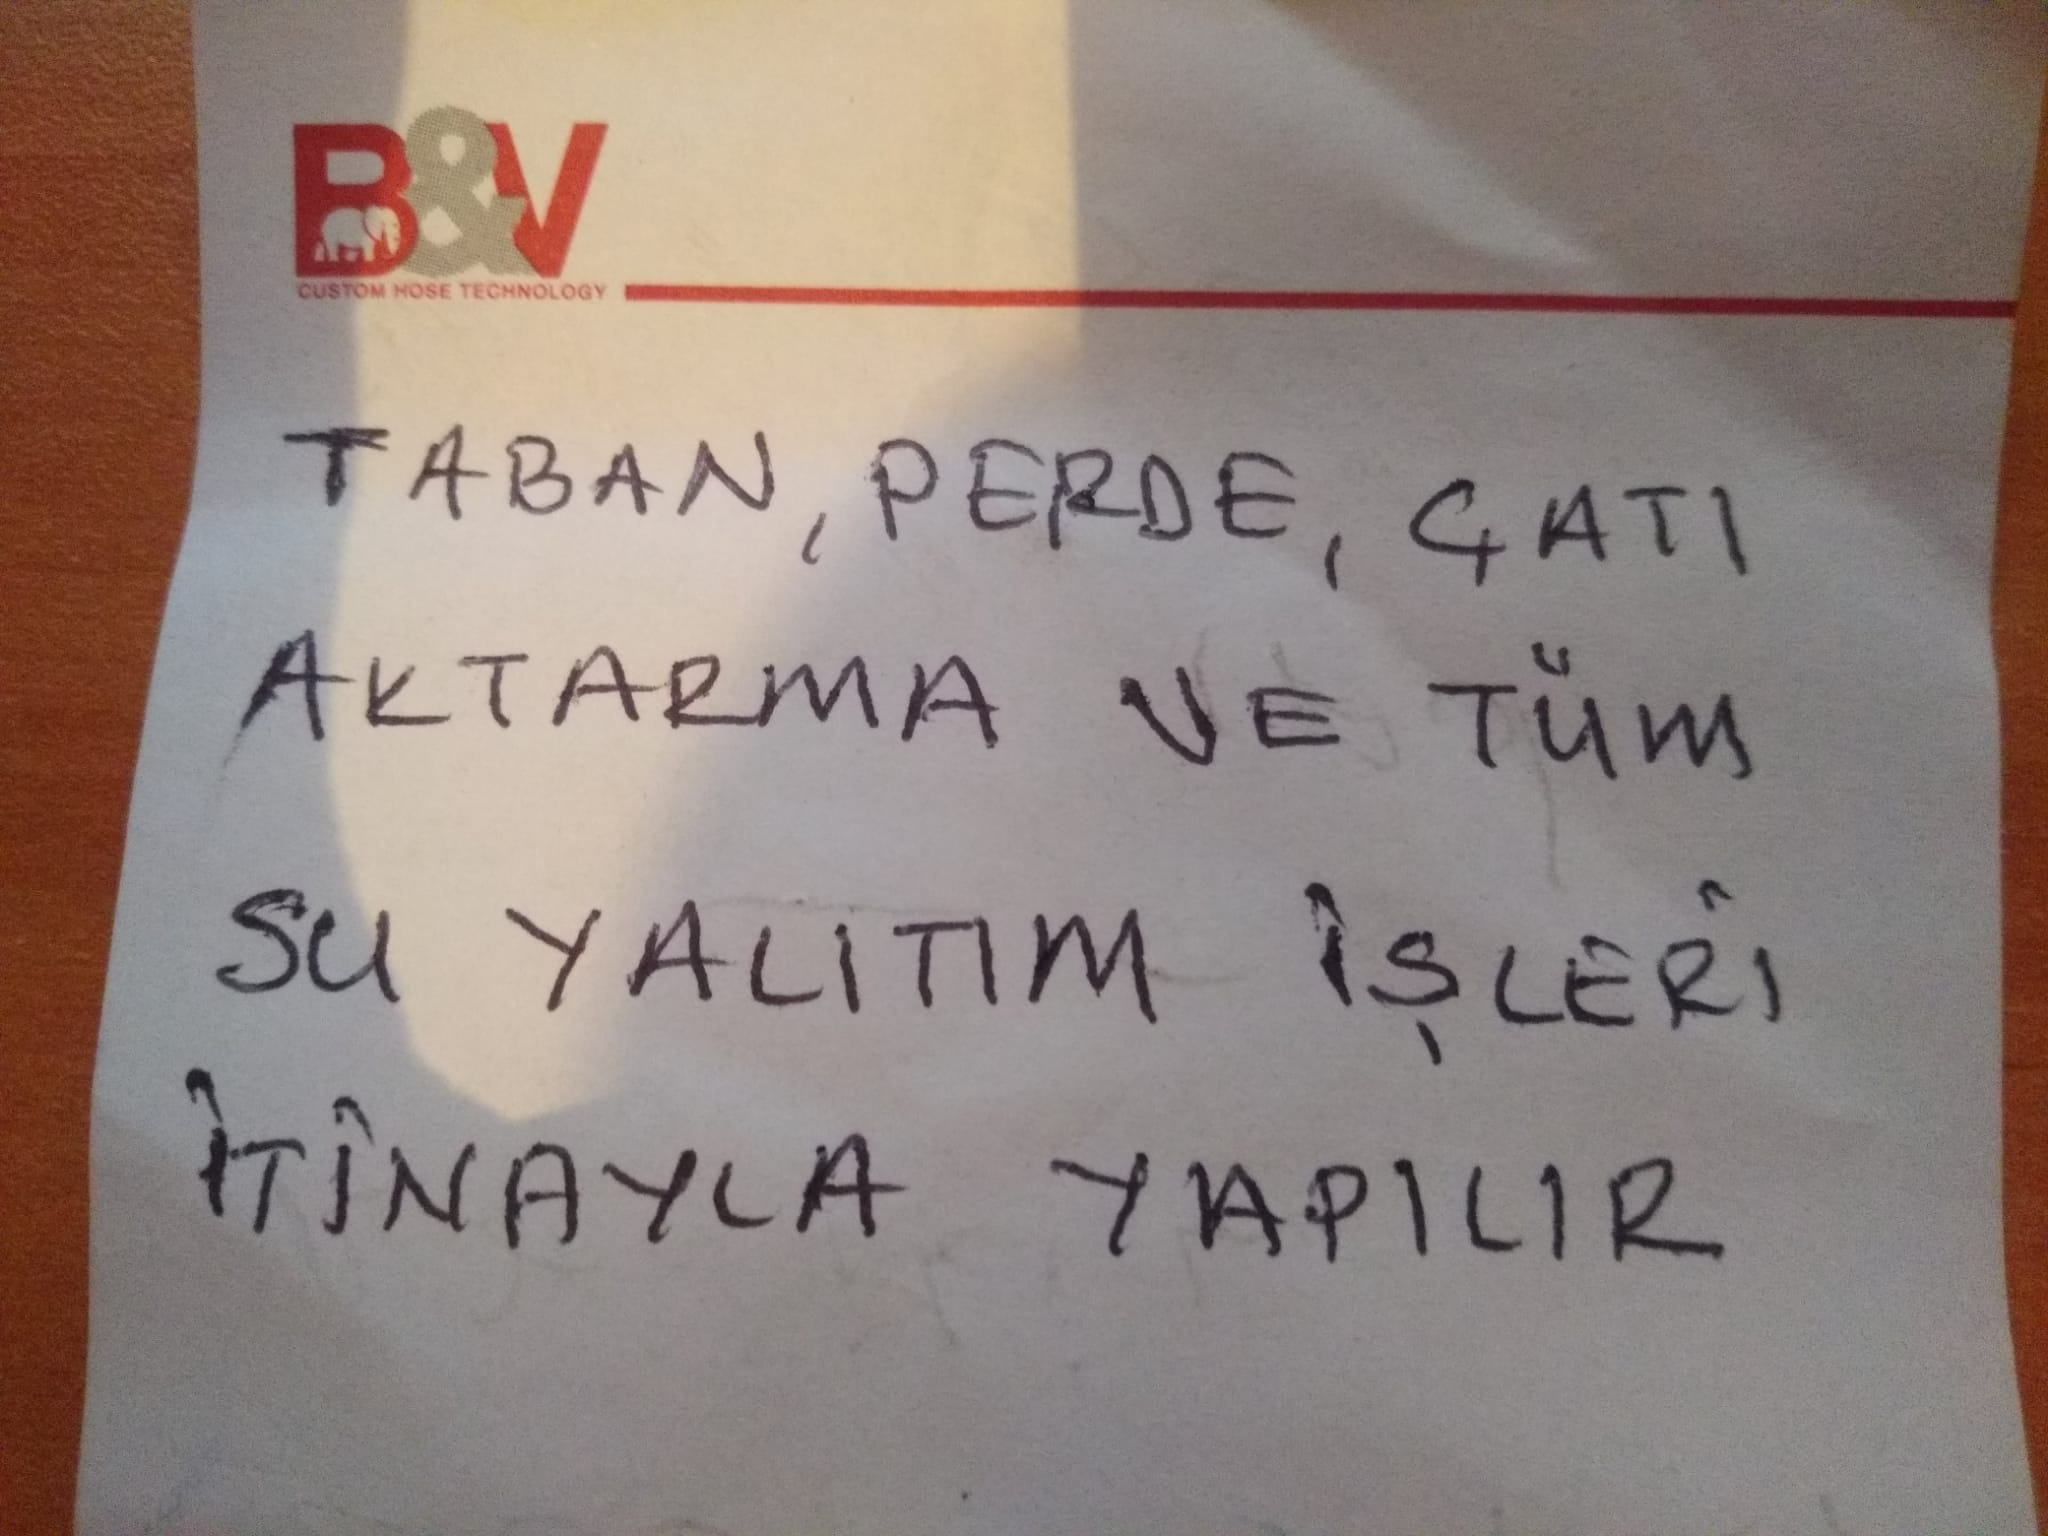 B&V
CUSTOM HOSE TECHNOLOGY
TABAN, PERDE, ÇATI
AKTARMA VE TÜM
SU YALITIM İŞLERİ
İTİNAYLA YAPILIR